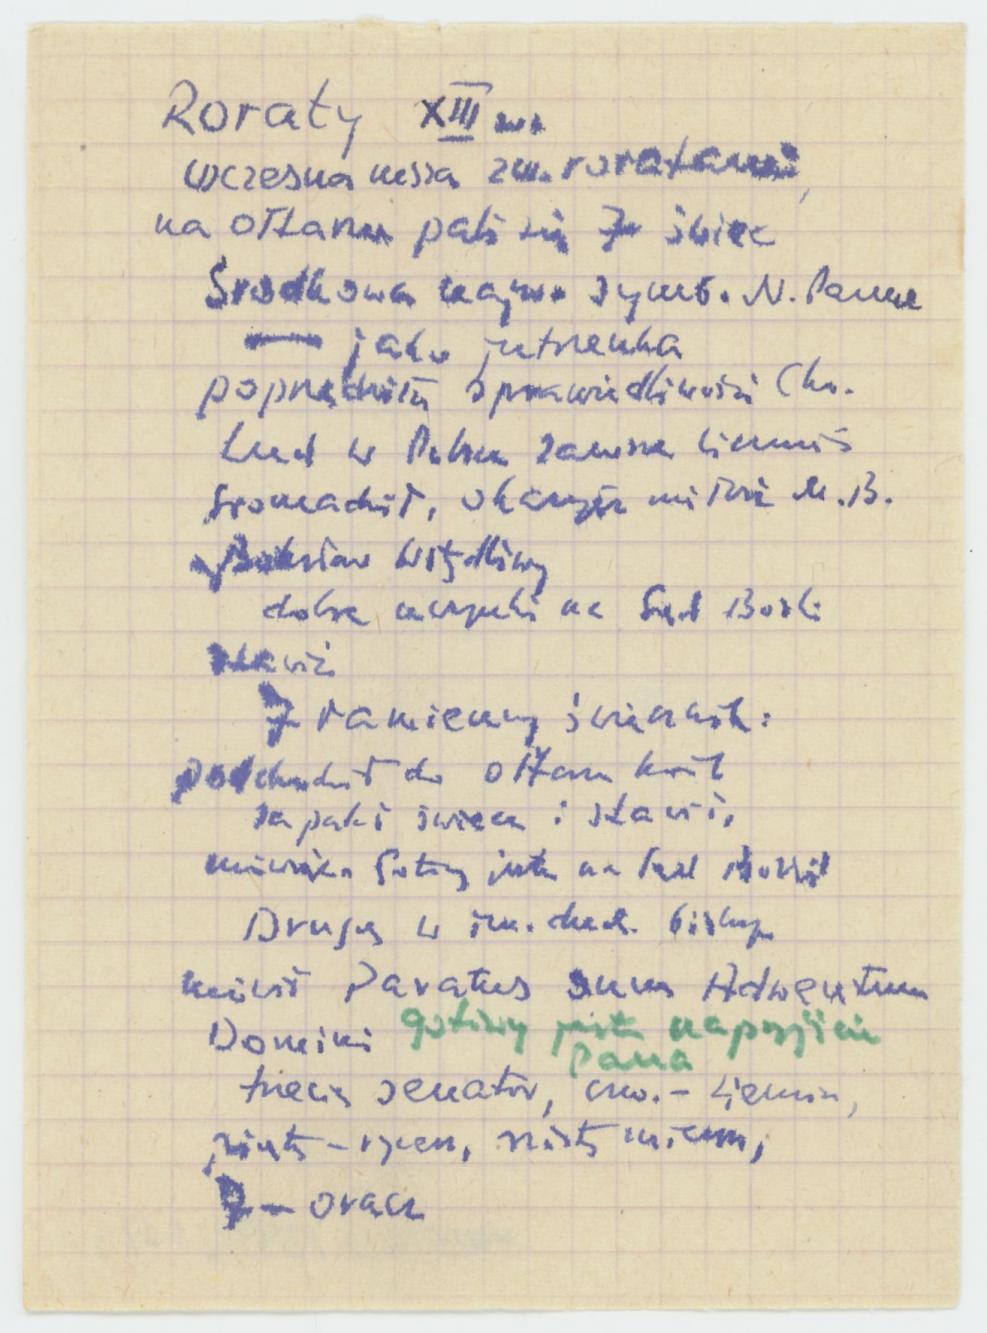 Roraty XIII w.
wczesna msza zw. roratami,
na ołtarzu pali się 7 świec
Środkowa najw. symb. N. Panne
— jako jutrzenka
poprzedziła sprawiedliwości Chr.
Lud w Polsce zawsze licznie
gromadził, okazując miłość M.B.
Bolesław Wstydliwy
dobre uczynki na Sąd Boski
stawić
7 ramienny świecznik:
podchodził do ołtarza król
zapalał świecę i stawiał,
mówiąc. Gotowy jestem na Sąd Boski
Drugą w im. duch. biskup
mówił Paratus sum Adwentum
Domini gotowy jestem na przyjście
Pana
trzecią senator, czw. - ziemian,
piątą - rycerz, szóstą mieszcz,
7 - oracz